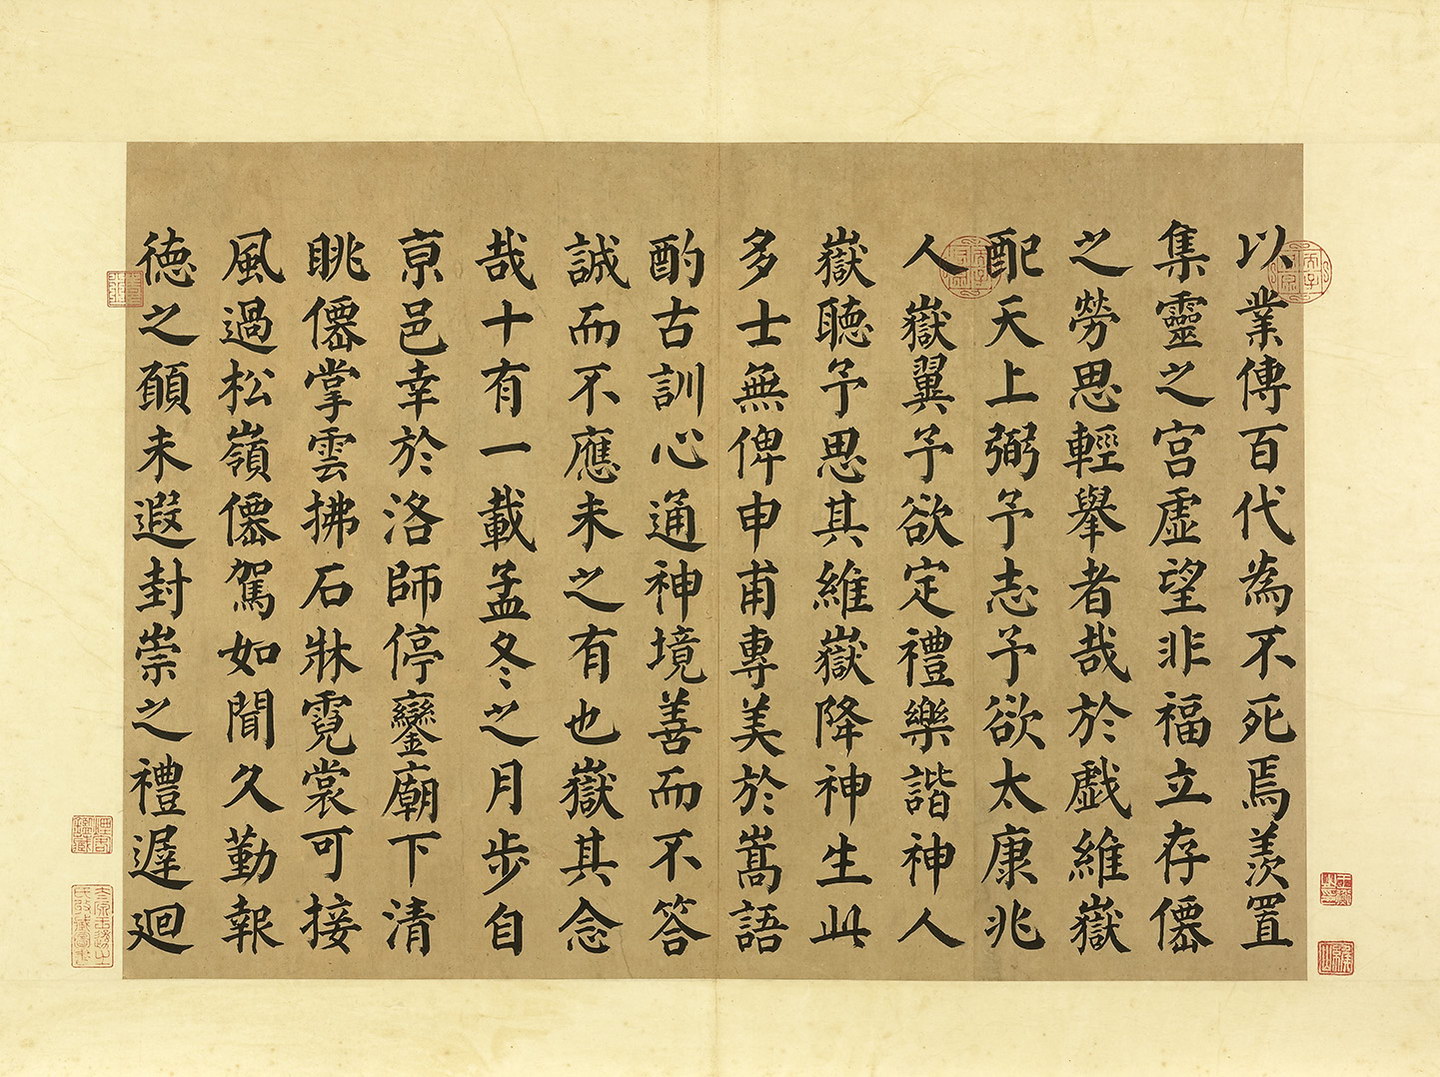 以業傳百代為不死焉羨置
集靈之宮虛望非福立存僊
之勞思輕舉者哉於戲維嶽
配天上弼予志予欲太康兆
人嶽翼予欲定禮樂諧神人
嶽聽予思其維嶽降神生此
多士無俾申甫專美於嵩語
酌古訓心通神境善而不答
誠而不應未之有也嶽其念
哉十有一載孟冬之月步自
京邑幸於洛師停鑾廟下清
眺僊掌雲拂石牀霓裳可接
風過松嶺僊駕如聞久勤報
德之願未遐封崇之禮遲迴